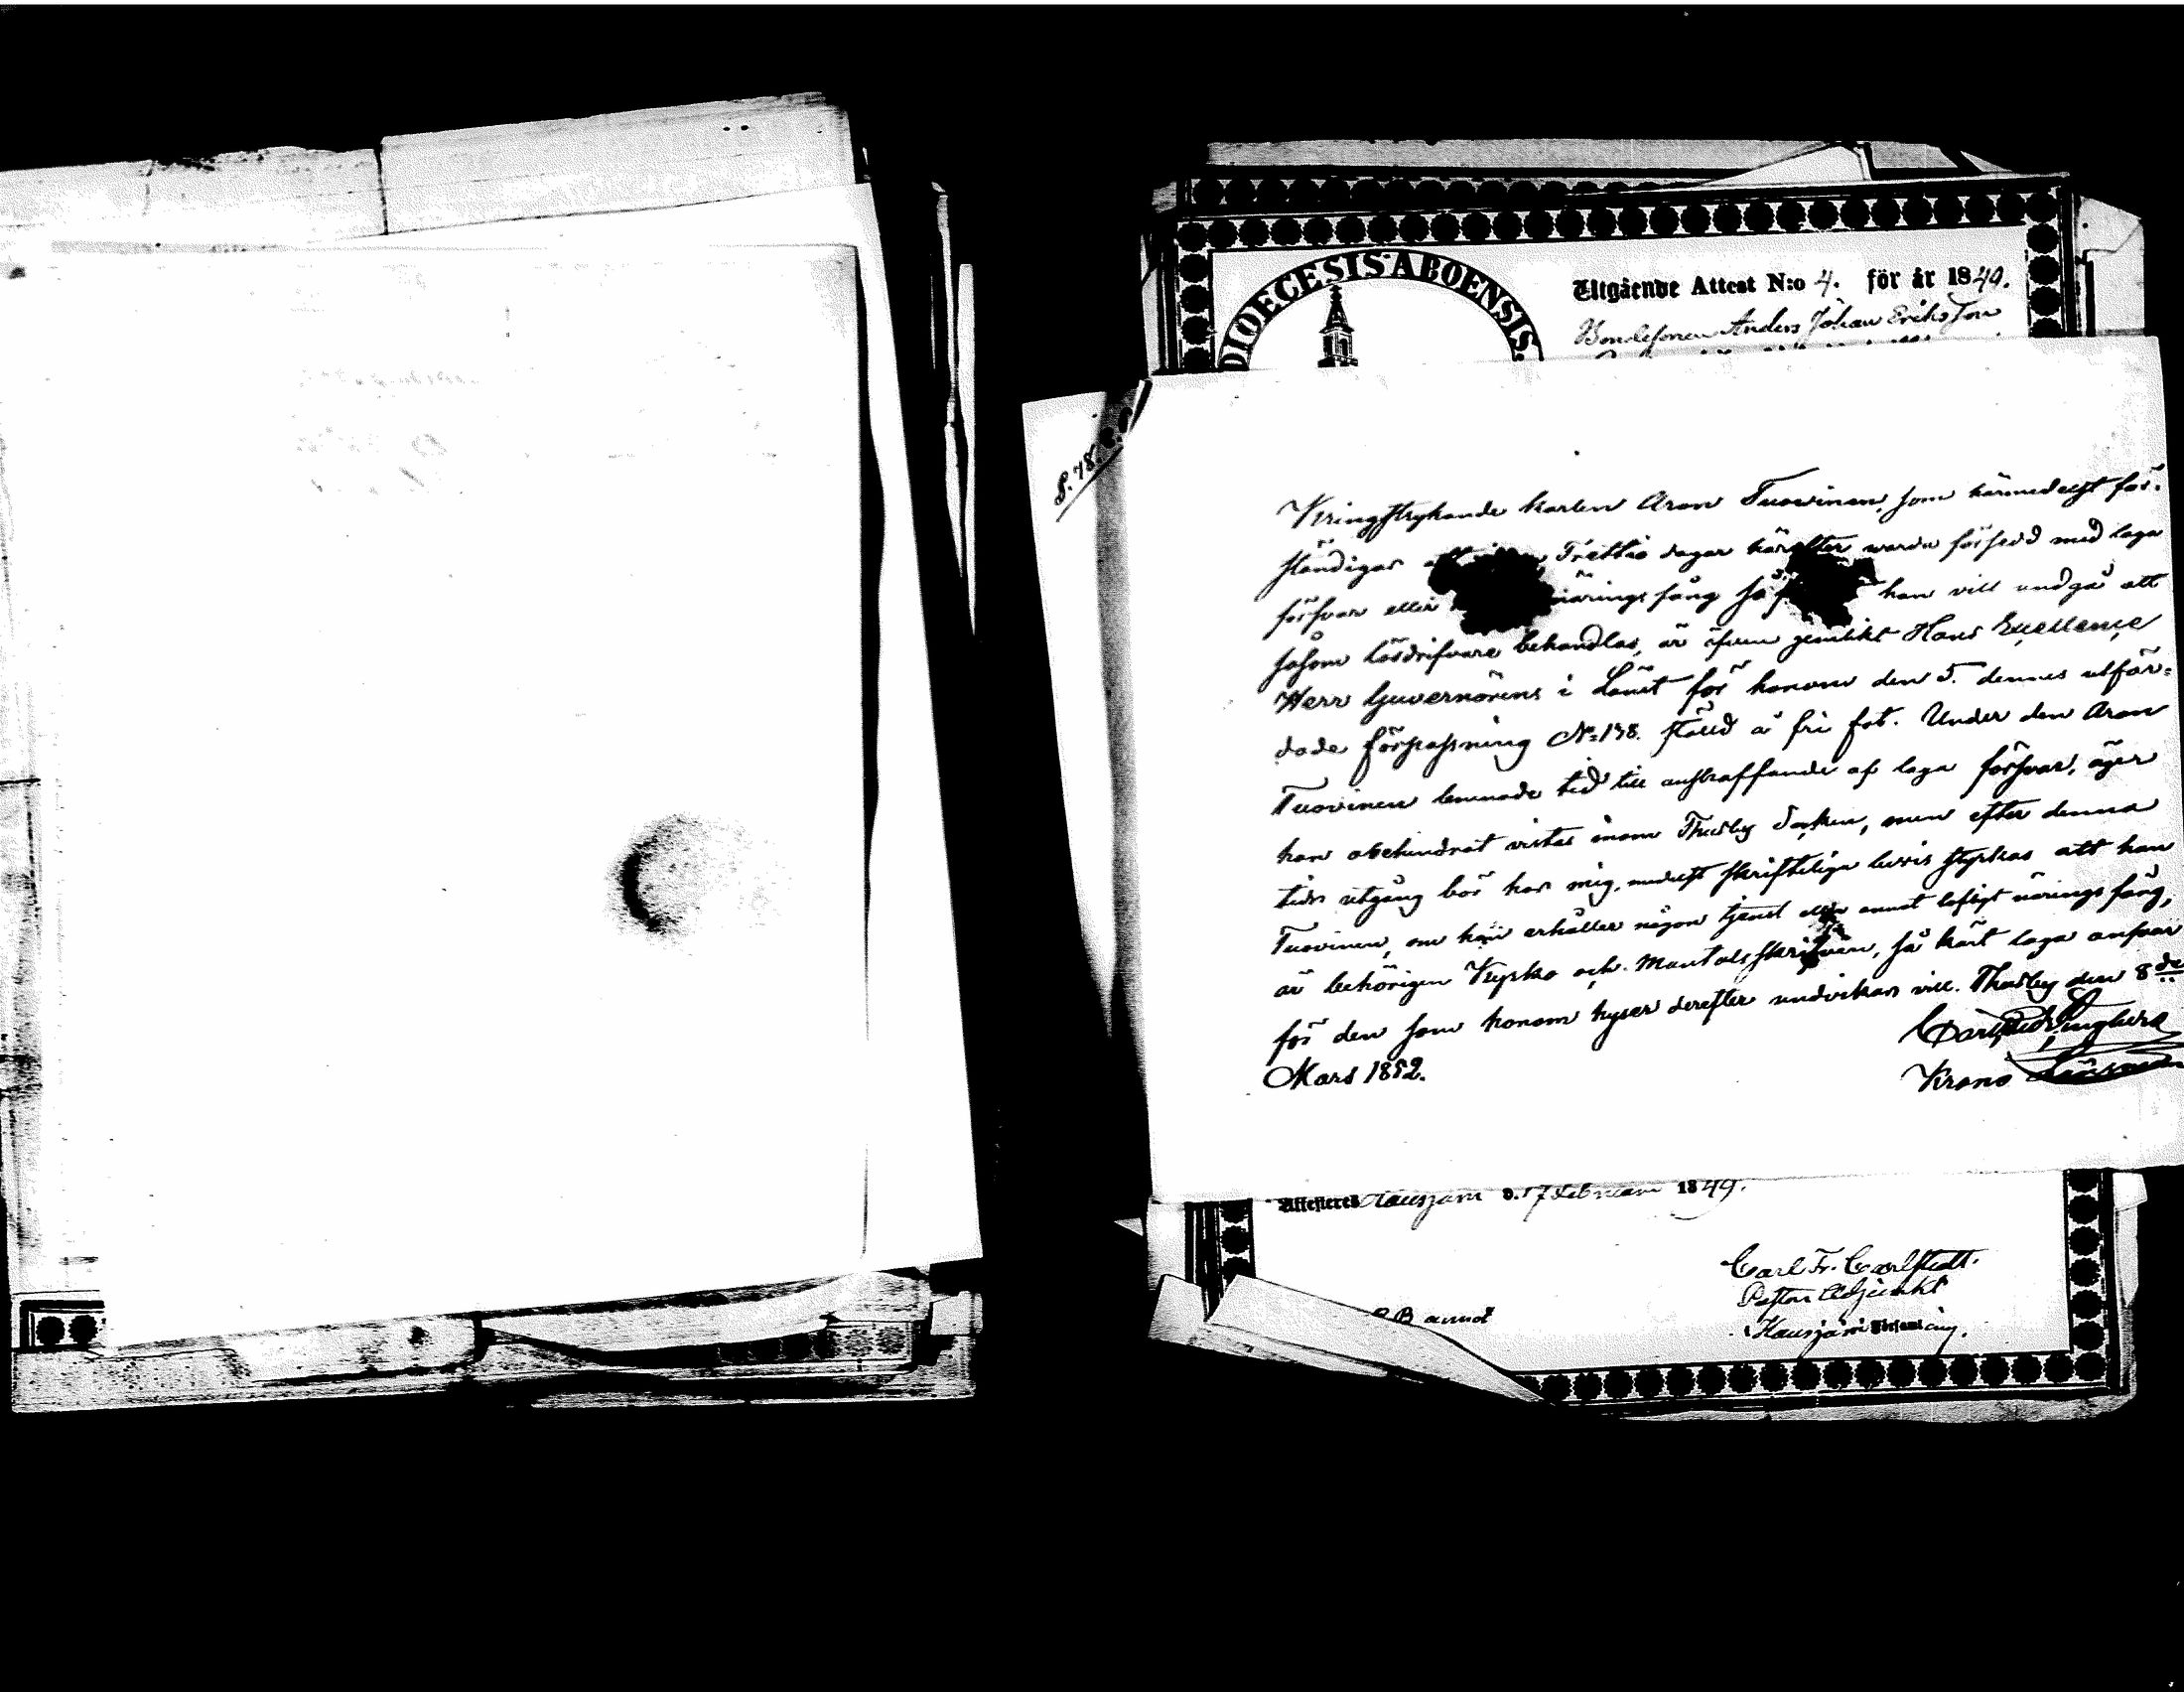 DIOECESIS ABOENSIS.
Utgående Attest N:o 4. för år 1849.
Bondesonen Anders Johan Eriksson
S. 48.
Kringstrykande karlen Aron Tuovinen, som härmedelst för-
ständigas att Trettio dagar härefter warda försedd med laga
försvar eller näringsfång så han vill undgå att
såsom lösdrifvare behandlas, är äfven jemlikt Hans Excellence
Herr Guvernörens i Länet för honom den 5. dennes utfär-
dade förpassning N:o 178. ställd å fri fot. Under den Aron
Tuovinen lemnade tid till anskaffande af laga försvar, äger
han obehindrat vistas inom Thusby Socken, men efter denna
tids utgång bör hos mig, medelst skriftliga bevis styrkas att han
Tuovinen, om han erhåller någon tjenst eller annat lofligt näringsfång,
är behörigen Kyrko och Mantalsskrifven, så kärt laga ansvar
för den som honom hyser derefter undvikas vill. Thusby den 8de
Mars 1852.
Carl
Krono Länsman
Attesteres Hausjärvi d. 7 Februari 1849.
Carl Fr. Carlstedt.
Pastors Adjunkt
i Hausjärvi Församling.